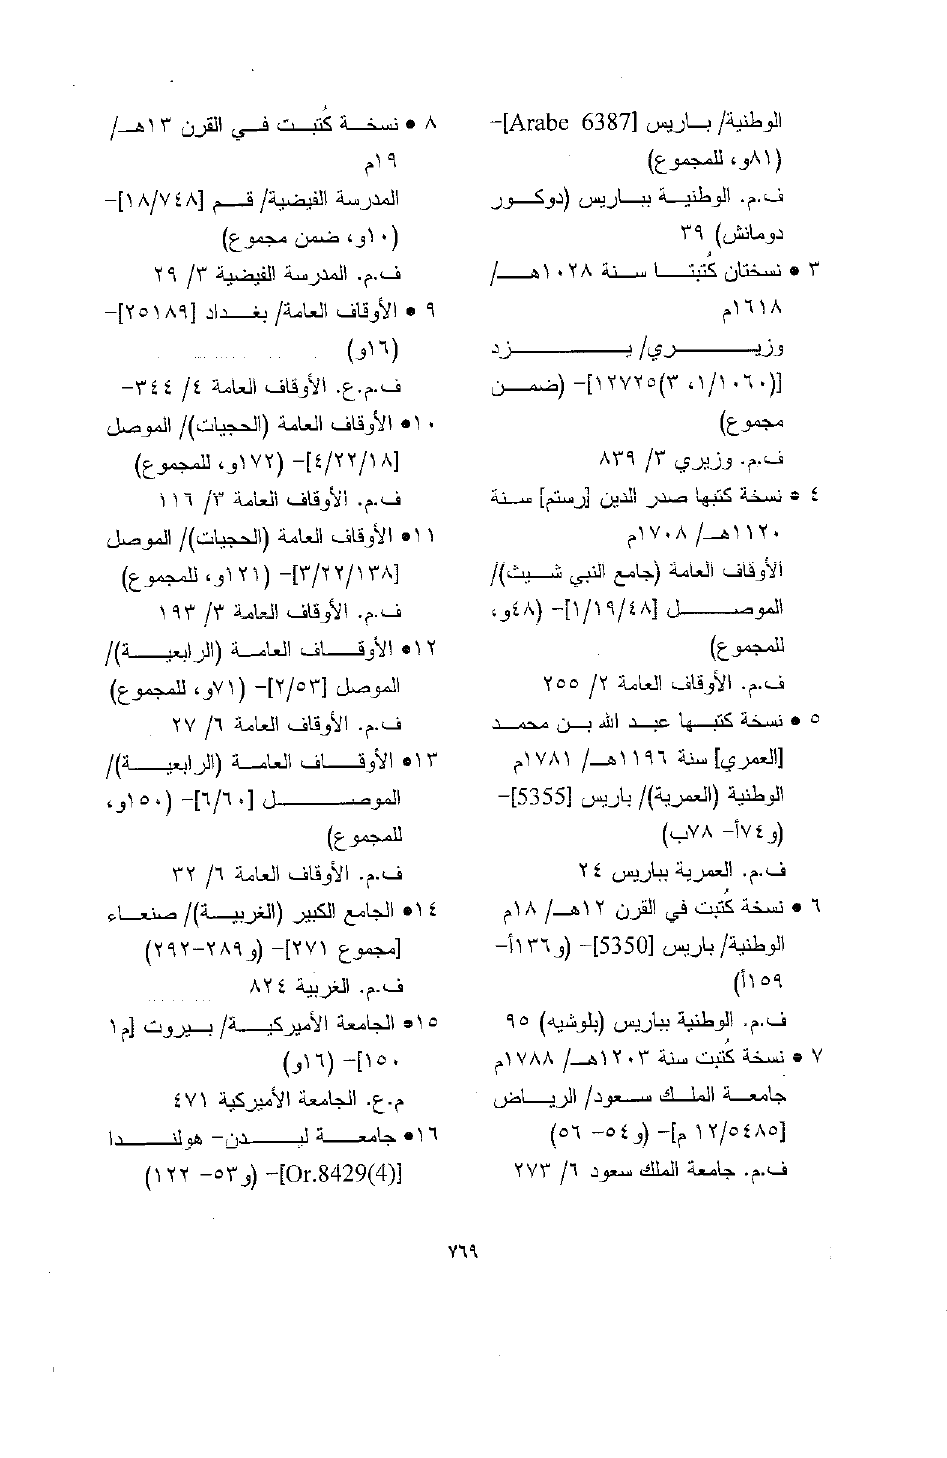 الوطنية/ باريس [Arabe 6387]-
(٨١و، للمجموع)
ف.م. الوطنية بباريس (دوكور
دومانش) ٣٩
٣ • نسختان كُتبتا سنة ١٠٢٨هـ/
١٦١٨م
وزيري/ يزد
[(١/١٠٦٠، ٣)١٢٧٢٥]- (ضمن
مجموع)
ف.م. وزيري ٣/ ٨٣٩
٤ • نسخة كتبها صدر الدين [رستم] سنة
١١٢٠هـ/ ١٧٠٨م
الأوقاف العامة (جامع النبي شيث)/
الموصل [١/١٩/٤٨]- (٤٨و،
للمجموع)
ف.م. الأوقاف العامة ٢/ ٢٥٥
٥ • نسخة كتبها عبد الله بن محمد
[العمري] سنة ١١٩٦هـ/ ١٧٨١م
الوطنية (العمرية)/ باريس [5355]-
(و٧٤أ- ٧٨ب)
ف.م. العمرية بباريس ٢٤
٦ • نسخة كُتبت في القرن ١٢هـ/ ١٨م
الوطنية/ باريس [5350]- (و١٣٦أ-
١٥٩أ)
ف.م. الوطنية بباريس (بلوشيه) ٩٥
٧ • نسخة كُتبت سنة ١٢٠٣هـ/ ١٧٨٨م
جامعة الملك سعود/ الرياض
[١٢/٥٤٨٥ م]- (و٥٤- ٥٦)
ف.م. جامعة الملك سعود ٦/ ٢٧٣
٨ • نسخة كُتبت في القرن ١٣هـ/
١٩م
المدرسة الفيضية/ قم [١٨/٧٤٨]-
(١٠و، ضمن مجموع)
ف.م. المدرسة الفيضية ٣/ ٢٩
٩ • الأوقاف العامة/ بغداد [٢٥١٨٩]-
(١٦و)
ف.م.ع. الأوقاف العامة ٤/ ٣٤٤-
١٠• الأوقاف العامة (الحجيات)/ الموصل
[٤/٢٢/١٨]- (١٧٢و، للمجموع)
ف.م. الأوقاف العامة ٣/ ١١٦
١١• الأوقاف العامة (الحجيات)/ الموصل
[٣/٢٢/١٣٨]- (١٢١و، للمجموع)
ف.م. الأوقاف العامة ٣/ ١٩٣
١٢• الأوقاف العامة (الرابعية)/
الموصل [٢/٥٣]- (٧١و، للمجموع)
ف.م. الأوقاف العامة ٦/ ٢٧
١٣• الأوقاف العامة (الرابعية)/
الموصل [٦/٦٠]- (١٥٠و،
للمجموع)
ف.م. الأوقاف العامة ٦/ ٣٢
١٤• الجامع الكبير (الغربية)/ صنعاء
[مجموع ٢٧١]- (و٢٨٩-٢٩٢)
ف.م. الغربية ٨٢٤
١٥• الجامعة الأميركية/ بيروت [م١
١٥٠]- (١٦و)
م.ع. الجامعة الأميركية ٤٧١
١٦• جامعة ليدن- هولندا
[Or.8429(4)]- (و٥٣- ١٢٢)
٧٦٩